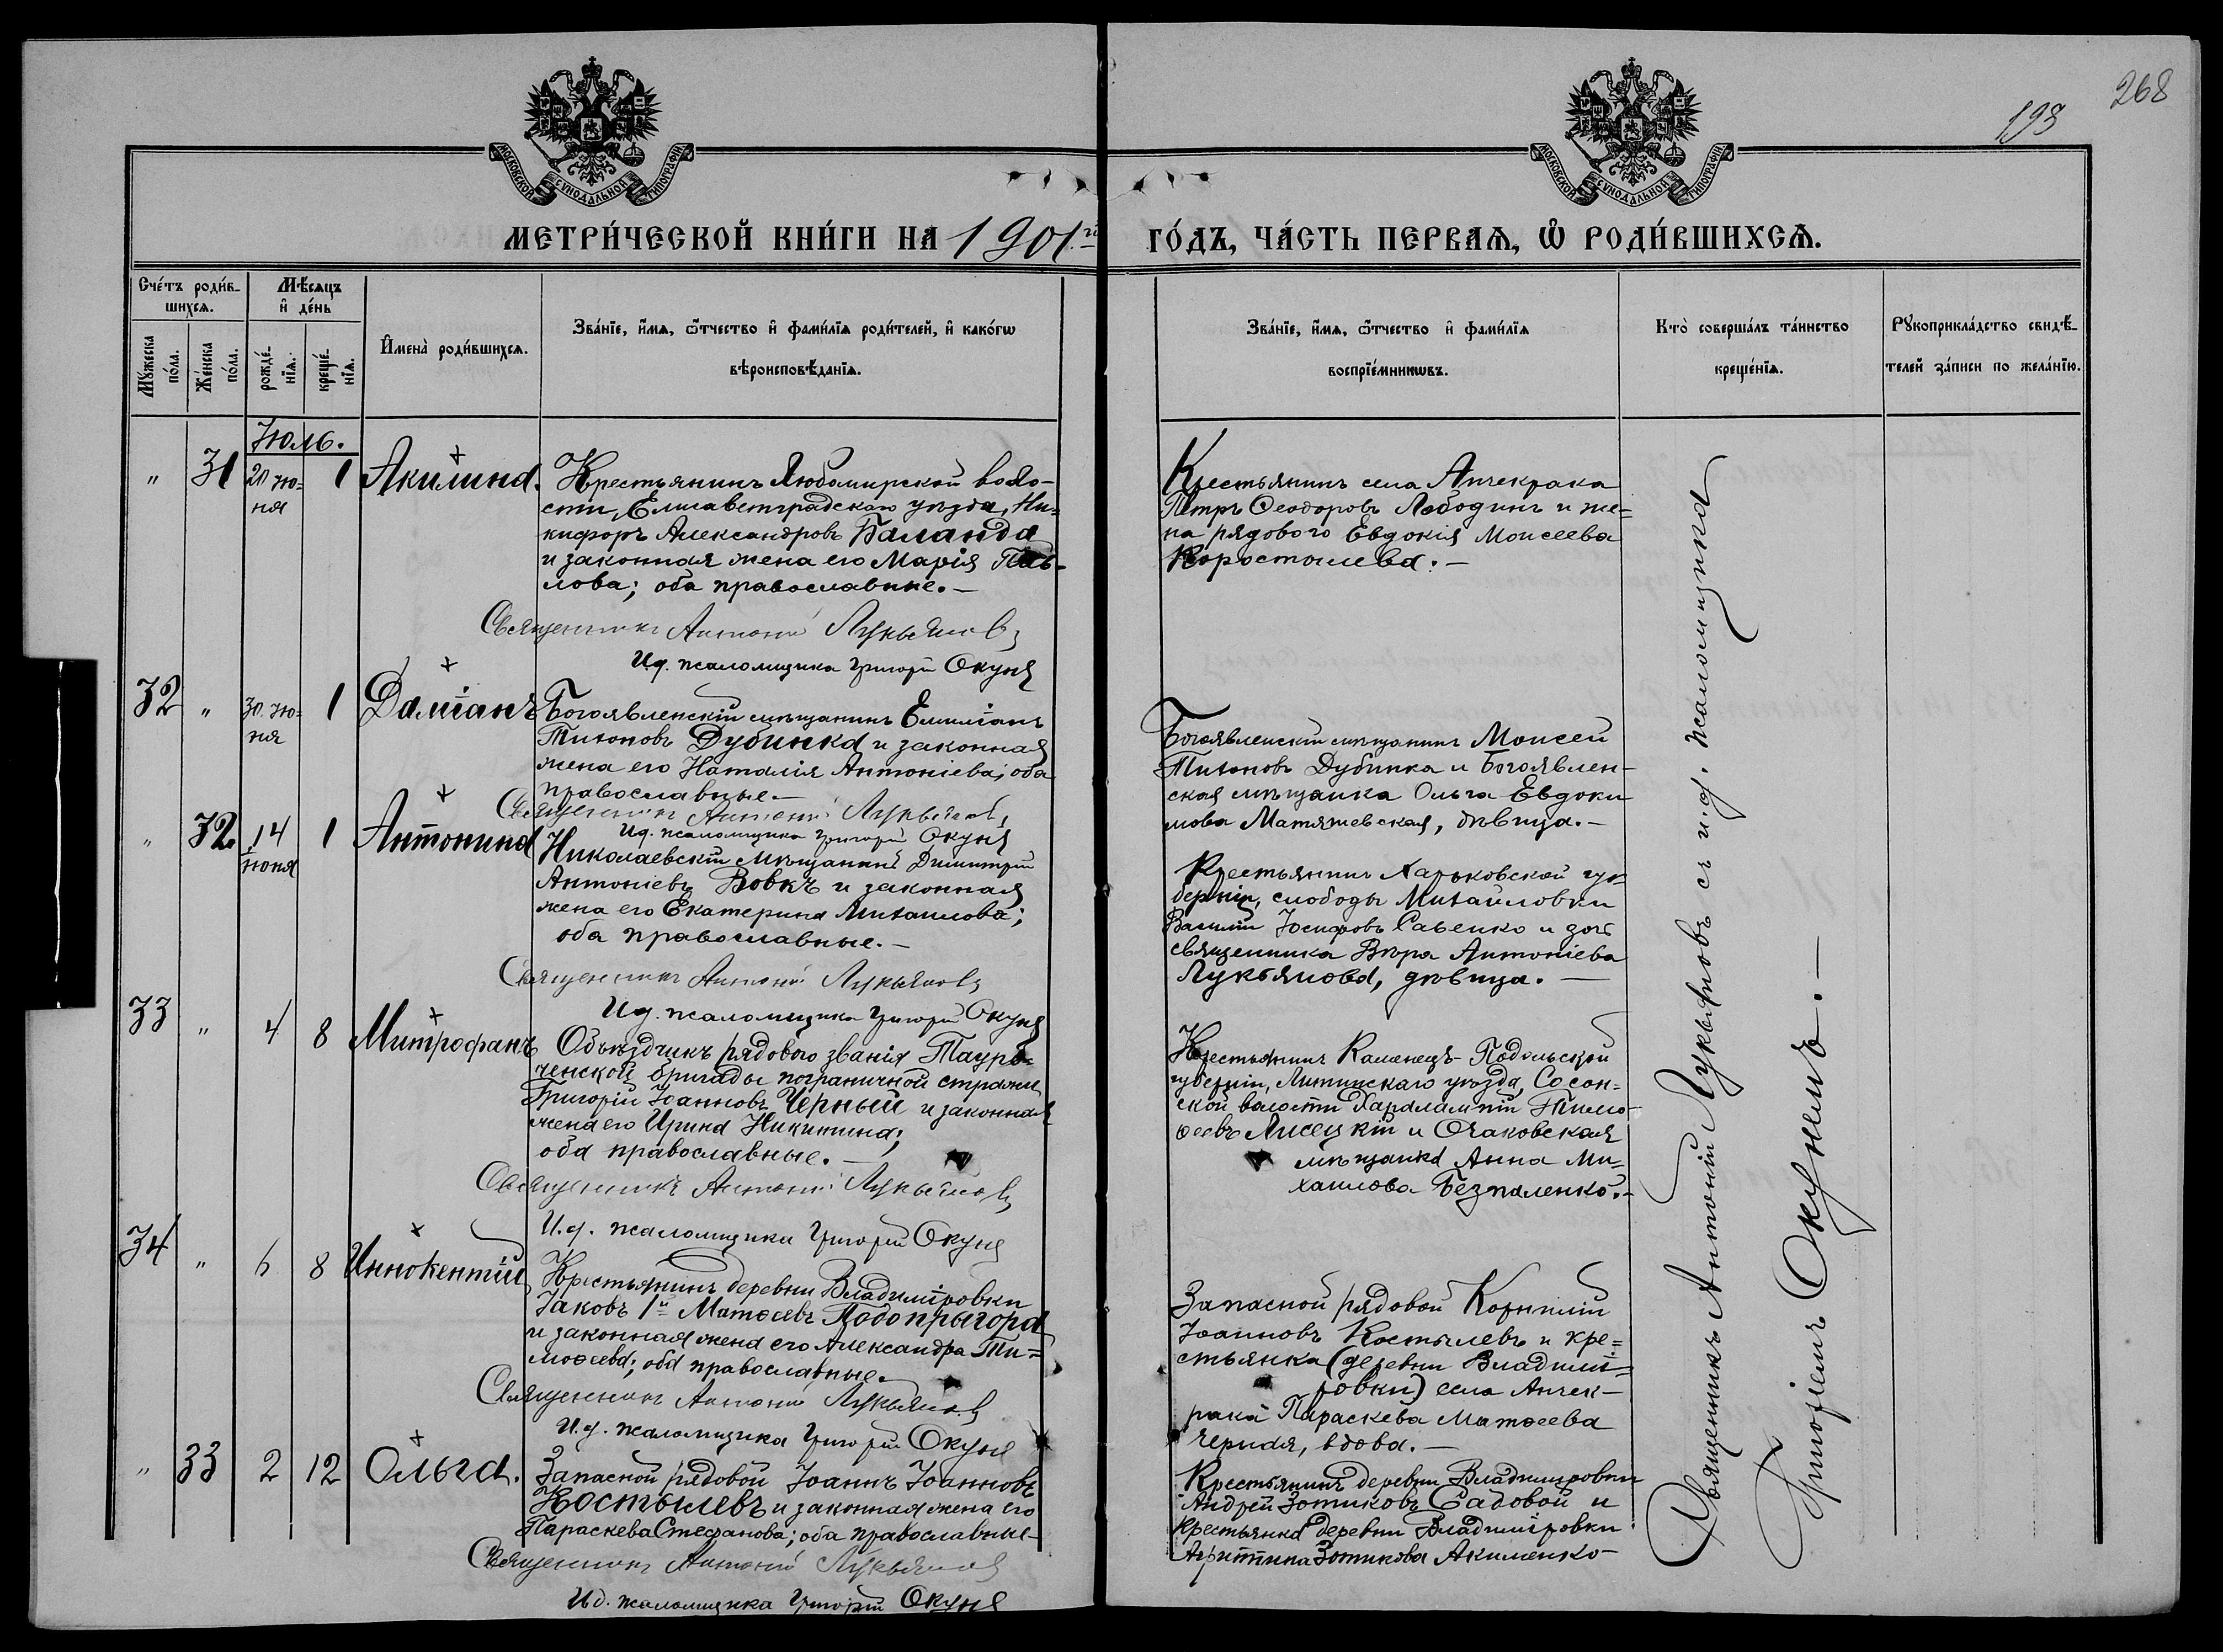 268
193
МОСКОВСКОЙ СѴНОДАЛЬНОЙ ТИПОГРАФІИ
МОСКОВСКОЙ СѴНОДАЛЬНОЙ ТИПОГРАФІИ
МЕТРИ́ЧЕСКОЙ КНИ́ГИ НА 1901й
ГО́ДЪ, ЧА́СТЬ ПЕРВАѦ, Ѡ РОДИ́ВШИХСѦ.
Сче́тъ роди́в-
шихсѧ.
Мѣ́сѧцъ
и҆ де́нь
Мꙋ́жеска по́ла.
Же́нска по́ла.
рожде́-
нїѧ.
креще́-
нїѧ.
И҆мена̀ роди́вшихсѧ.
Зва́нїе, и҆́мѧ, ѻ҆́тчество и҆ фами́лїѧ роди́телей, и҆ како́гѡ
вѣроисповѣ́данїѧ.
Зва́нїе, и҆́мѧ, ѻ҆́тчество и҆ фами́лїѧ
воспрїе́мникѡвъ.
Кто̀ соверша́лъ та́инство
креще́нїѧ.
Рꙋкоприкла́дство свидѣ́-
телей за́писи по жела́нїю.
Іюль.
" 31 20 Ію=
ня 1 Акилина.
Крестьянинъ Любомирской воло-
сти, Елисаветградскаго уѣзда, Ни-
кифоръ Александровъ Баланда
и законная жена его Марія Пав-
лова; оба православные.-
Священникъ Антоній Лукьяновъ
И.д. псаломщика Григорій Окунь
Крестьянинъ села Анчекрака
Петръ Ѳеодоровъ Лободинъ и же=
на рядового Евдокія Моисеева
Коростылева.-
32 " 30 Ію=
ня 1 Даміанъ
Богоявленскій мѣщанинъ Емиліанъ
Тихоновъ Дубинка и законная
жена его Наталія Антоніева; оба
православные.-
Священникъ Антоній Лукьяновъ
И.д. псаломщика Григорій Окунь
Богоявленскій мѣщанинъ Моисей
Тихоновъ Дубинка и Богоявлен-
ская мѣщанка Ольга Евдоки
мова Матяшевская, дѣвица.-
" 32. 14
Іюня 1 Антонина
Николаевскій мѣщанинъ Димитрій
Антоніевъ Вовкъ и законная
жена его Екатерина Михаилова;
оба православные.-
Священникъ Антоній Лукьяновъ
И.д. псаломщика Григорій Окунь
Крестьянинъ Харьковской гу-
берніи, слободы Михайловки
Василій Іосифовъ Савенко и дочь
священника Вѣра Антоніева
Лукьянова, дѣвица.-
33 " 4 8 Митрофанъ
Объѣздчикъ рядового званія Таури-
ческой бригады пограничной стражи
Григорій Іоанновъ Черный и законная
жена его Ирина Никитина;
оба православные.-
Священникъ Антоній Лукьяновъ
И.д. псаломщика Григорій Окунь
Крестьянинъ Каменецъ-Подольской
губерніи, Литинскаго уѣзда, Сосон=
ской волости Харалампій Тимо-
ѳеевъ Лисецкій и Очаковская
мѣщанка Анна Ми=
хаилова Безпаленко.-
34 " 6 8 Иннокентій
Крестьянинъ деревни Владиміровки
Іаковъ 1й Матѳеевъ Подопрыгора
и законная жена его Александра Ти=
моѳеева; оба православные.
Священникъ Антоній Лукьяновъ
И.д. псаломщика Григорій Окунь
Запасной рядовой Корнилій
Іоанновъ Костылевъ и кре=
стьянка (деревни Владимі=
ровки) села Анчек-
рака Параскева Матѳеева
Черная, вдова.-
" 33 2 12 Ольга.
Запасной рядовой Іоаннъ Іоанновъ
Костылевъ и законная жена его
Параскева Стефанова; оба православные-
Священникъ Антоній Лукьяновъ
И.д. псаломщика Григорій Окунь
Крестьянинъ деревни Владиміровки
Андрей Зотиковъ Садовой и
крестьянка деревни Владиміровки
Агриппина Зотикова Акименко-
Священникъ Антоній Лукьяновъ съ и.д. псаломщика
Григоріемъ Окунемъ.-